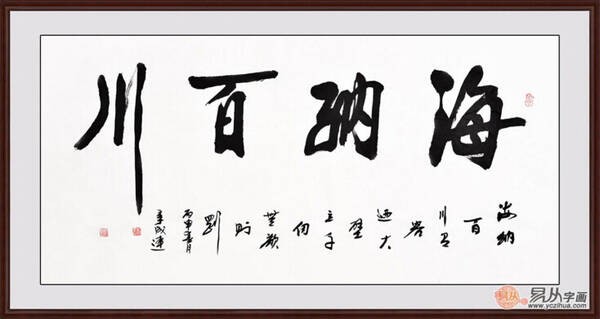 海纳百川
海纳
百
川有
容
迺大
壁
立千
仞
無欲
则
劉
丙申春月
李成連
易从字画
www.yczihua.com